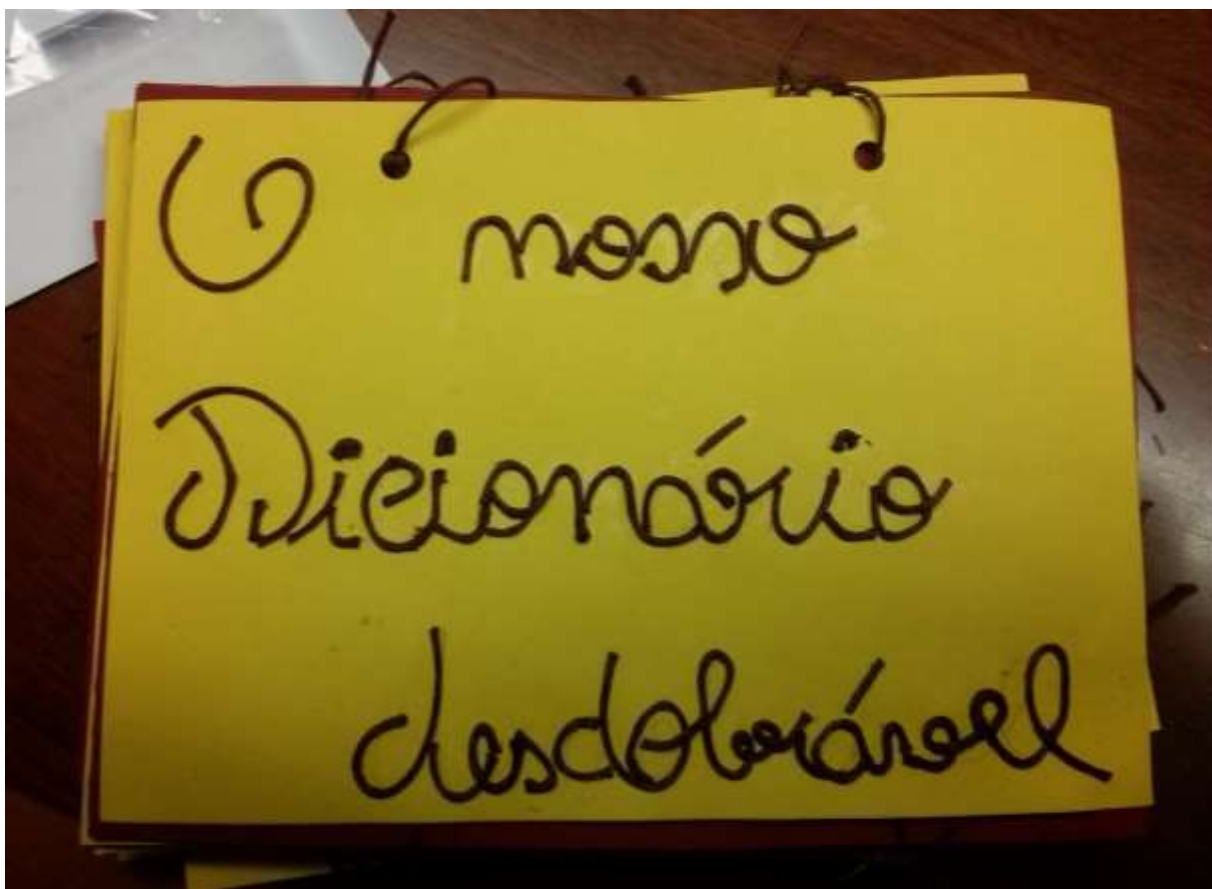 O nosso
Dicionário
desdobrável